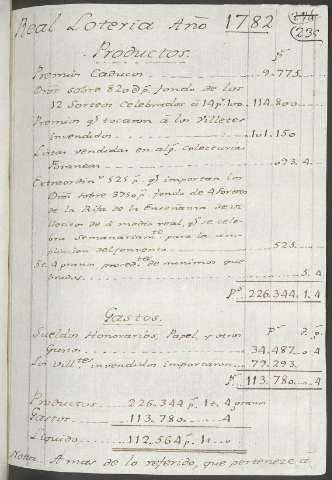 Real Loteria Año 1782
(235
Productos.
pˢ
Premios Caducos 9.775.
Dros sobre 820@p. fondo de los
12 Sorteos Celebrados á 14 p% 114.800
Premios qᵉ tocaron á los Villetes
invendidos 101.150
Listas vendidas en alg. Colecturias
Foraneas 073.4
Extraordinº 525 p. qᵉ importan los
Dros sobre 3750 p. fondo de 4 Sorteos
de la Rifa de la Enseñanza de Vi
lletitos de á medio real, qᵉ se cele-
bra Semanariamᵗᵉ para la am-
pliacion del Convento 525
5t. 4 granos proced.ᵗᵉˢ de minimos que
brados 5.4
pˢ 226.344.1.4
Gastos.
Sueldos Honorarios, Papel, y otros
Gastos 34.487.0.4
Los Vill.ᵗᵉˢ invendidos importaron 79.293
pˢ 113.780.4
Productos 226.344 p. 1t. 4 granos
Gastos 113.780 4
Liquido 112.564 p. 1t. 0
Nota: A mas de lo referido, que pertenece á